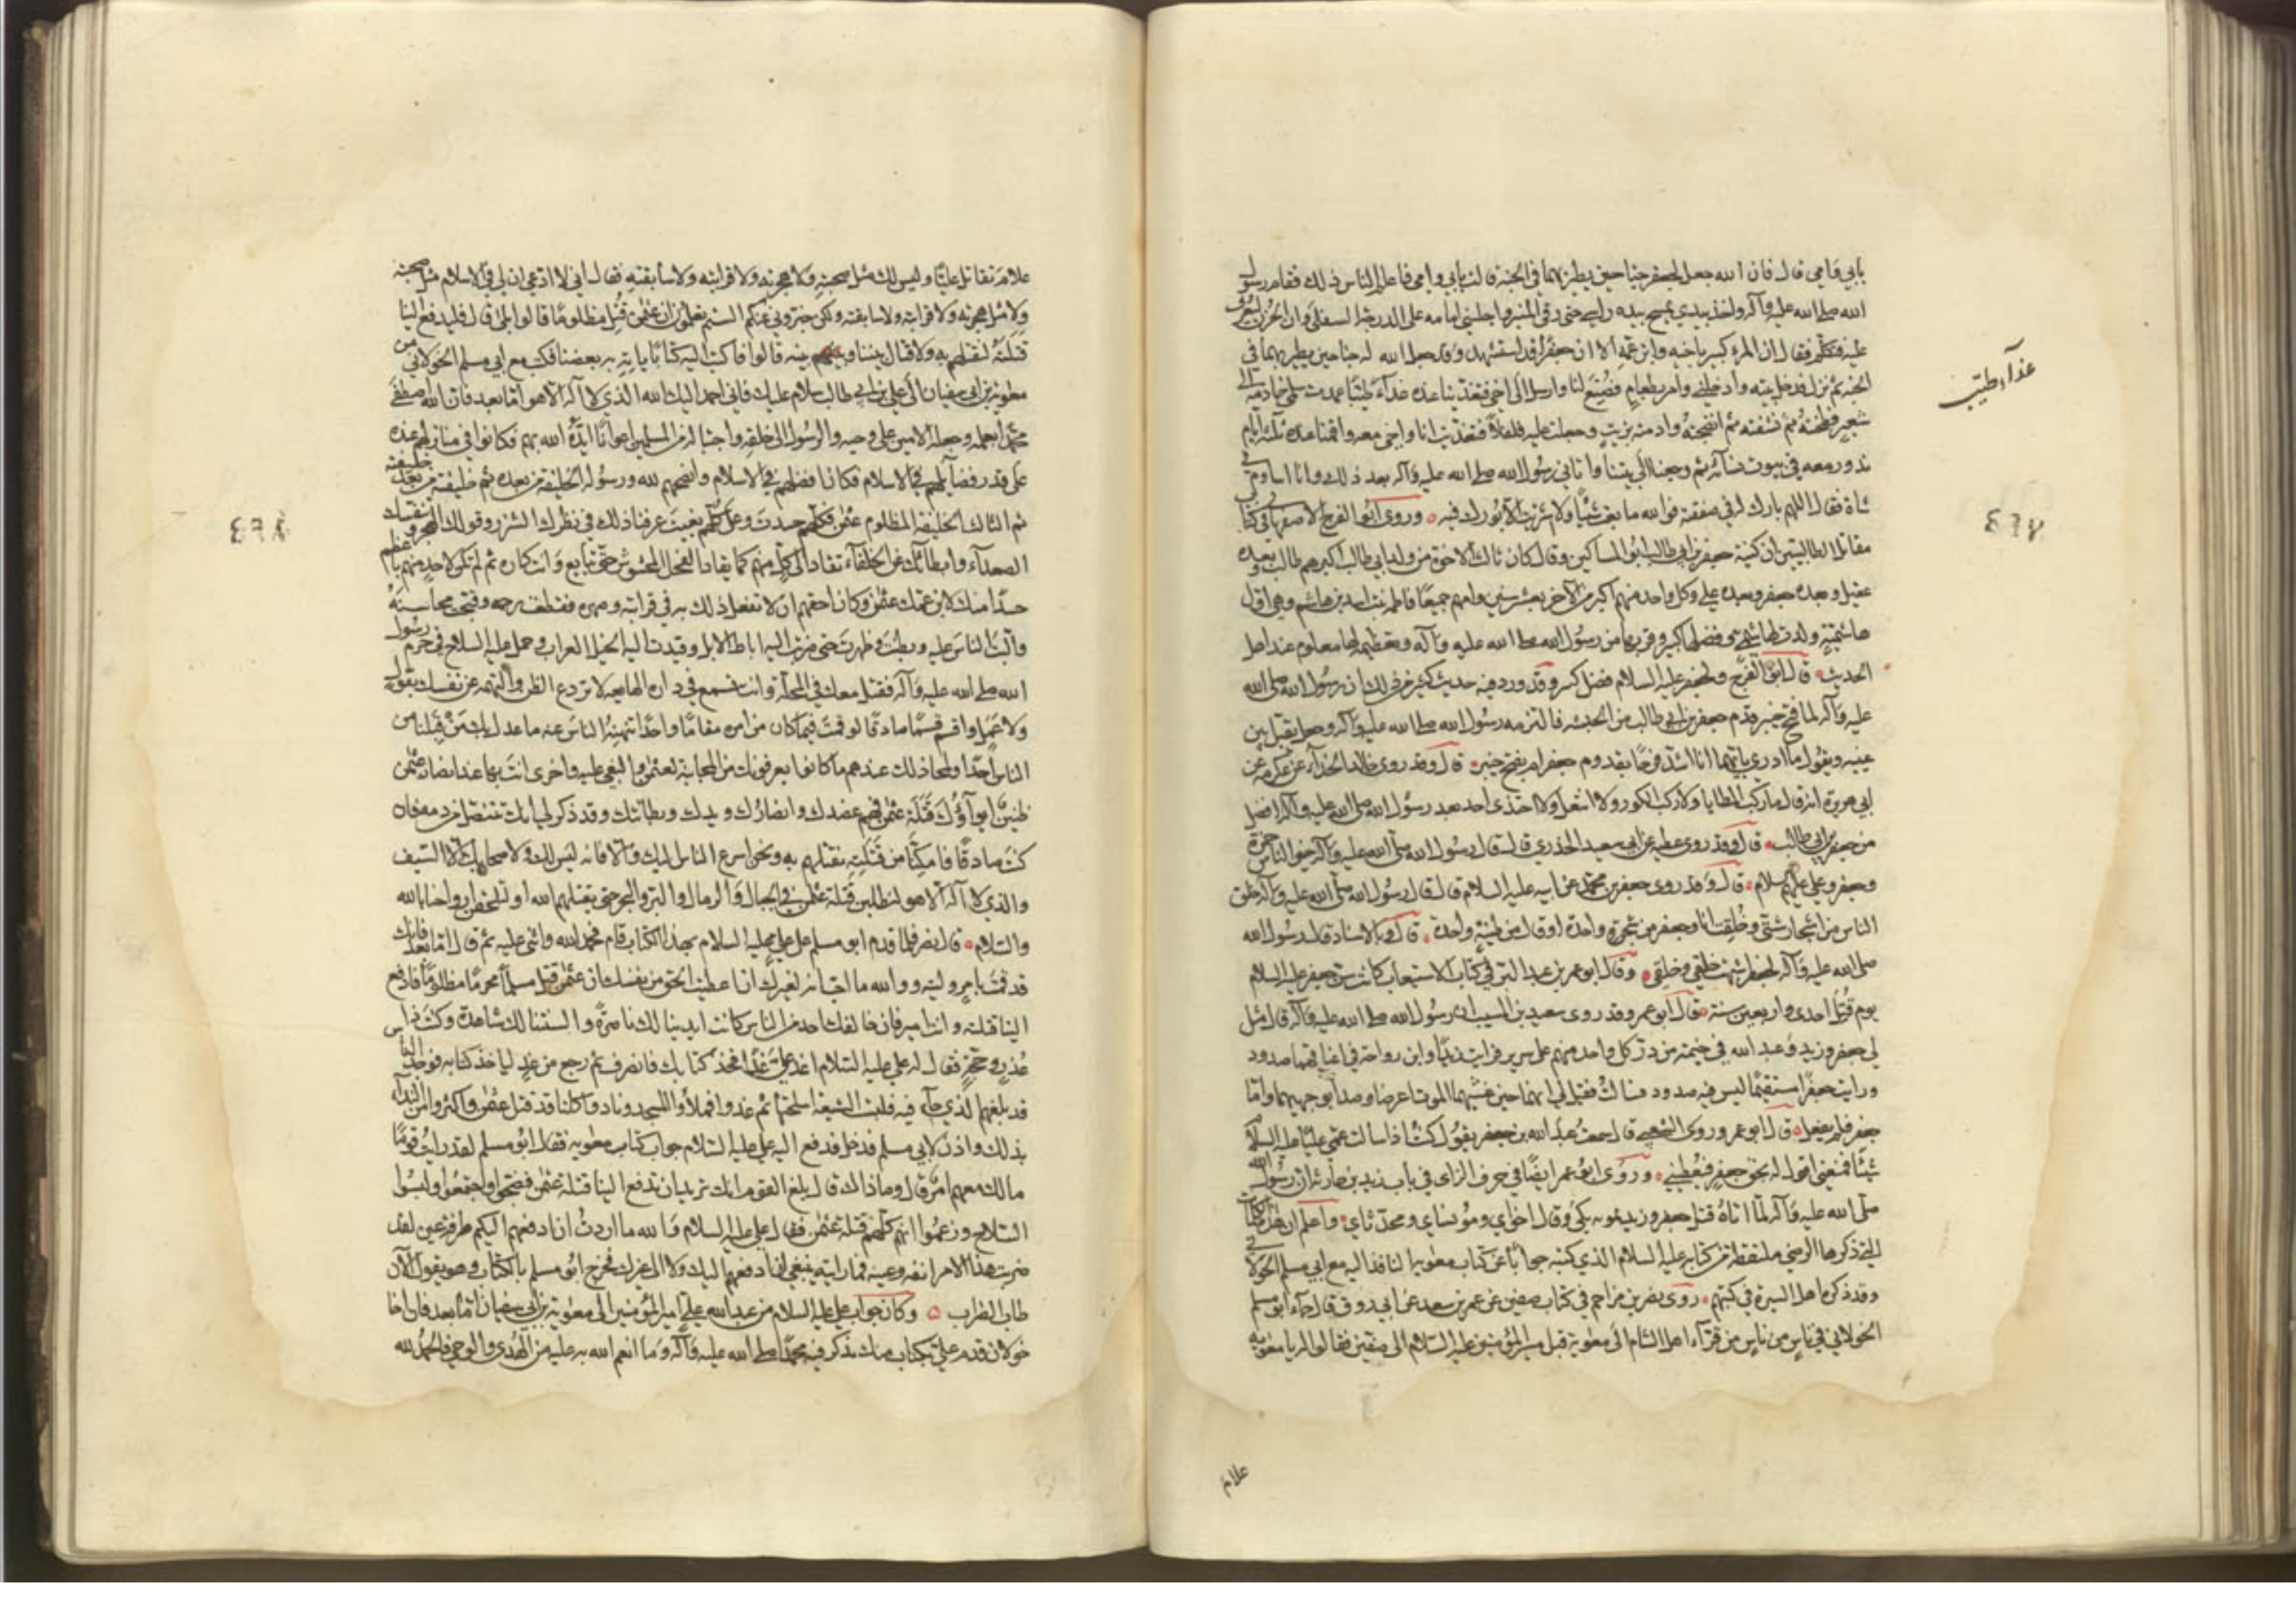 بابي وامي قال فان الله جعل لجعفر جناحين يطير بهما في الجنة قالت بابي وامي فاعلم الناس ذلك فقام رسول
الله صلى الله عليه وآله واخذ بيدي يمسح بيده راسي حتى رقى المنبر واجلسني امامه على الدرجة السفلى وان الحزن ليعرف
عليه فتكلم فقال ان المرء كثير باخيه وابن عمه الا ان جعفرا قد استشهد وقد جعل الله له جناحين يطير بهما في
الجنة ثم نزل فدخل بيته وادخلني وامر بطعام فصنع لنا وارسل الى اخي فتغذينا عنده غذاء طيبا عمدت سلمى خادمته الى
غذاء طيب
شعير فطحنته ثم نشفته ثم انضجته وادمته بزيت وجعلت عليه فلفلا فتغذيت انا واخي معه واقمنا عنده ثلثة ايام
ندور معه في بيوت نسائه ثم رجعنا الى بيتنا واتاني رسول الله صلى الله عليه وآله بعد ذلك وانا اساوم في
شاة فقال اللهم بارك له في صفقته فوالله ما بعت شيئا ولا شريت الا بورك فيه وروى ابو الفرج الاصفهاني في كتاب
مقاتل الطالبيين ان كنية جعفر بن ابي طالب ابو المساكين وقال كان ثالث الاخوة من ولد ابي طالب اكبرهم طالب وبعده
عقيل وبعده جعفر وبعده علي وكل واحد منهم اكبر من الآخر بعشر سنين وامهم جميعا فاطمة بنت اسد بن هاشم وهي اول
هاشمية ولدت لهاشمي وفضلها كبير وقربها من رسول الله صلى الله عليه وآله وتعظيمه لها معلوم عند اهل
الحديث قال ابو الفرج ولجعفر عليه السلام فضل كثير وقد ورد فيه حديث كثير من ذلك ان رسول الله صلى الله
عليه وآله لما فتح خيبر قدم جعفر بن ابي طالب من الحبشة فالتزمه رسول الله صلى الله عليه وآله وجعل يقبل بين
عينيه ويقول ما ادري بايهما انا اشد فرحا بقدوم جعفر ام بفتح خيبر قال وقد روى خالد الحذاء عن عكرمة عن
ابي هريرة انه قال ما ركب المطايا ولا ركب الكور ولا انتعل ولا احتذى احد بعد رسول الله صلى الله عليه وآله افضل
من جعفر بن ابي طالب قال وقد روى عطية عن ابي سعيد الخدري قال قال رسول الله صلى الله عليه وآله خير الناس حمزة
وجعفر وعلي عليهم السلام قال وقد روى جعفر بن محمد عن ابيه عليه السلام قال قال رسول الله صلى الله عليه وآله خلق
الناس من اشجار شتى وخلقت انا وجعفر من شجرة واحدة او قال من طينة واحدة قال وبالاسناد قال رسول الله
صلى الله عليه وآله لجعفر اشبهت خلقي وخلقي وقال ابو عمر بن عبد البر في كتاب الاستيعاب كانت سن جعفر عليه السلام
يوم قتل احدى واربعين سنة قال ابو عمر وقد روى سعيد بن المسيب ان رسول الله صلى الله عليه وآله قال مثل
لي جعفر وزيد وعبد الله في خيمة من در كل واحد منهم على سرير فرايت زيدا وابن رواحة في اعناقهما صدود
ورايت جعفرا مستقيما ليس فيه صدود فسالت فقيل لي انهما حين غشيهما الموت اعرضا وصدا بوجهيهما واما
جعفر فلم يفعل قال ابو عمر وروى الشعبي قال سمعت عبد الله بن جعفر يقول كنت اذا سالت عمي عليا عليه السلام
شيئا فمنعني اقول له بحق جعفر فيعطيني وروى ابو عمر ايضا في حرف الزاي في باب زيد بن حارثة ان رسول الله
صلى الله عليه وآله لما اتاه قتل جعفر وزيد بمؤتة بكى وقال اخواي ومؤنساي ومحدثاي واعلم ان هذه الكلمات
التي ذكرها الرضي ملتقطة من كتابه عليه السلام الذي كتبه جوابا عن كتاب معوية النافذ اليه مع ابي مسلم الخولاني
وقد ذكره اهل السيرة في كتبهم روى نصر بن مزاحم في كتاب صفين عن عمر بن سعد عن ابي روق قال جاء ابو مسلم
الخولاني في ناس من قراء اهل الشام الى معوية قبل مسير امير المؤمنين عليه السلام الى صفين فقالوا له يا معوية
علام
علام تقاتل عليا وليس لك مثل صحبته ولا هجرته ولا قرابته ولا سابقته فقال اني لا ادعي ان لي في الاسلام مثل صحبته
ولا مثل هجرته ولا قرابته ولا سابقته ولكن خبروني عنكم الستم تعلمون ان عثمن قتل مظلوما قالوا بلى قال فليدفع الينا
قتلته لنقتلهم به ولا قتال بيننا وبينه قالوا فاكتب اليه كتابا ياتيه به بعضنا فكتب مع ابي مسلم الخولاني من
معوية بن ابي سفيان الى علي بن ابي طالب سلام عليك فاني احمد اليك الله الذي لا اله الا هو اما بعد فان الله اصطفى
محمدا بعلمه وجعله الامين على وحيه والرسول الى خلقه واجتبا له من المسلمين اعوانا ايده الله بهم فكانوا في منازلهم عنده
على قدر فضايلهم في الاسلام فكان افضلهم في الاسلام وانصحهم لله ورسوله الخليفة من بعده ثم خليفة خليفته من بعد
ثم الثالث الخليفة المظلوم عثمن فكلهم حسدت وعلى كلهم بغيت عرفنا ذلك في نظرك الشزر وقولك الهجر وتنفسك
الصعداء وابطائك عن الخلفاء تقاد الى كل منهم كما يقاد الفحل المخشوش حتى تبايع وانت كاره ثم لم تكن لاحد منهم باعظم
حسدا منك لابن عمك عثمن وكان احقهم ان لا تفعل ذلك به في قرابته وصهره فقطعت رحمه وقبحت محاسنه
والبت الناس عليه وبطنت وظهرت حتى ضربت اليه اباط الابل وقيدت اليه الخيل العراب وحمل عليه السلاح في حرم رسول
الله صلى الله عليه وآله فقتل معك في المحلة وانت تسمع في داره الهايعة لا تردع الظن والتهمة عن نفسك بقول
ولا عمل واقسم قسما صادقا لو قمت فيما كان من امره مقاما واحدا تنهنه الناس عنه ما عدل بك من قبلنا من
الناس احدا ولمحا ذلك عندهم ما كانوا يعرفونك به من المجانبة لعثمن والبغي عليه واخرى انت بها عند انصار عثمن
ظنين ايواؤك قتلة عثمن فهم عضدك وانصارك ويدك وبطانتك وقد ذكر لي انك تنتصل من دمه فان
كنت صادقا فامكنا من قتلته نقتلهم به ونحن اسرع الناس اليك والا فانه ليس لك ولا صحابك الا السيف
والذي لا اله الا هو لنطلبن قتلة عثمن في الجبال والرمال والبر والبحر حتى يقتلهم الله او لتلحقن ارواحنا بالله
والسلام قال نصر فلما قدم ابو مسلم على علي عليه السلام بهذا الكتاب قام فحمد الله واثنى عليه ثم قال اما بعد فانك
قد قمت بامر وليته ووالله ما احب انه لغيرك ان اعطيت الحق من نفسك ان عثمن قتل مسلما محرما مظلوما فادفع
الينا قتلته وانت امير فان خالفك احد من الناس كانت ايدينا لك ناصرة والسنتنا لك شاهدة وكنت ذا
عذر وحجة فقال له علي عليه السلام اغد علي غدا فخذ كتابك فانصرف ثم رجع من غد لياخذ كتابه فوجد الناس
قد بلغهم الذي جاء فيه فلبست الشيعة اسلحتها ثم غدوا فملأوا المسجد ونادوا كلنا قد قتل عثمن واكثروا من النداء
بذلك واذن لابي مسلم فدخل فدفع اليه علي عليه السلام جواب كتاب معوية فقال ابو مسلم لقد رايت قوما
مالك معهم امر قال وما ذاك قال بلغ القوم انك تريد ان تدفع الينا قتلة عثمن فضجوا واجتمعوا ولبسوا
السلاح وزعموا انهم كلهم قتلة عثمن فقال علي عليه السلام والله ما اردت ان ادفعهم اليكم طرفة عين لقد
ضربت هذا الامر انفه وعينه فما رايته ينبغي ان ادفعهم اليك ولا الى غيرك فخرج ابو مسلم بالكتاب وهو يقول الآن
طاب الضراب وكان جواب علي عليه السلام من عبد الله علي امير المؤمنين الى معوية بن ابي سفيان اما بعد فان اخا
خولان قدم علي بكتاب منك تذكر فيه محمدا صلى الله عليه وآله وما انعم الله به عليه من الهدى والوحي فالحمد لله